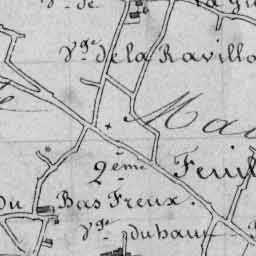 Vge de
Vge de la Ravillo
Mad
2ème Feuil
du Bas Freux.
Vge du haut